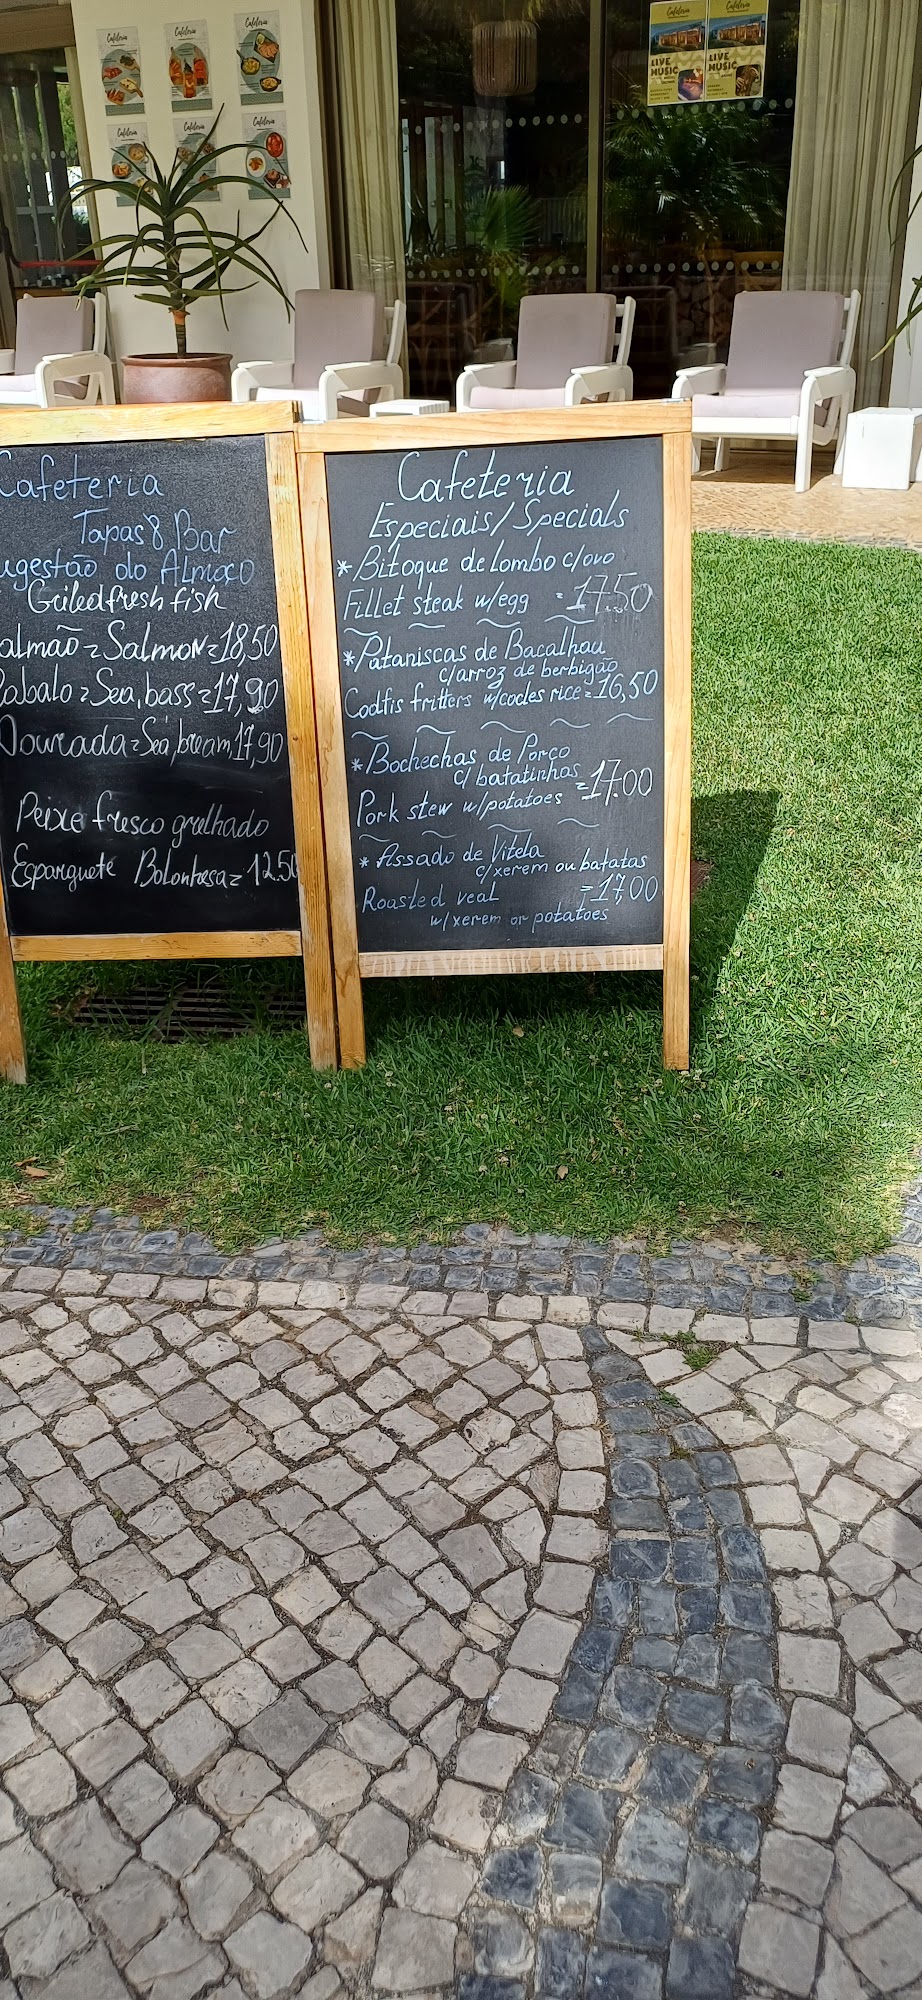 Cafeteria
Cafeteria
Cafeteria
Cafeteria
Cafeteria
Cafeteria
Cafeteria
Cafeteria
LIVE
MUSIC
LIVE
MUSIC
Cafeteria
Tapas & Bar
ugestão do Almoço
Griled fresh fish
almão = Salmon = 18,50
Robalo = Sea, bass = 17,90
Dourada = Sea, bream 17,90
Peixe fresco grelhado
Esparguete Bolonhesa = 12.50
Cafeteria
Especiais/Specials
*Bitoque de Lombo c/ovo
Fillet steak w/egg = 17.50
*Pataniscas de Bacalhau
c/arroz de berbigão
Codfis fritters w/cocles rice = 16,50
*Bochechas de Porco
c/ batatinhas
Pork stew w/potatoes = 17.00
*Assado de Vitela
c/xerem ou batatas
Roasted veal = 17,00
w/xerem or potatoes